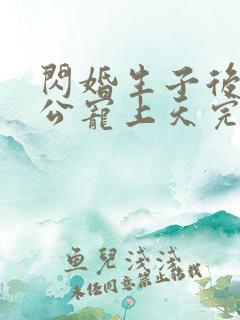 閃婚生子後
公寵上天完
魚兒淺淺
未經同意禁止轉載